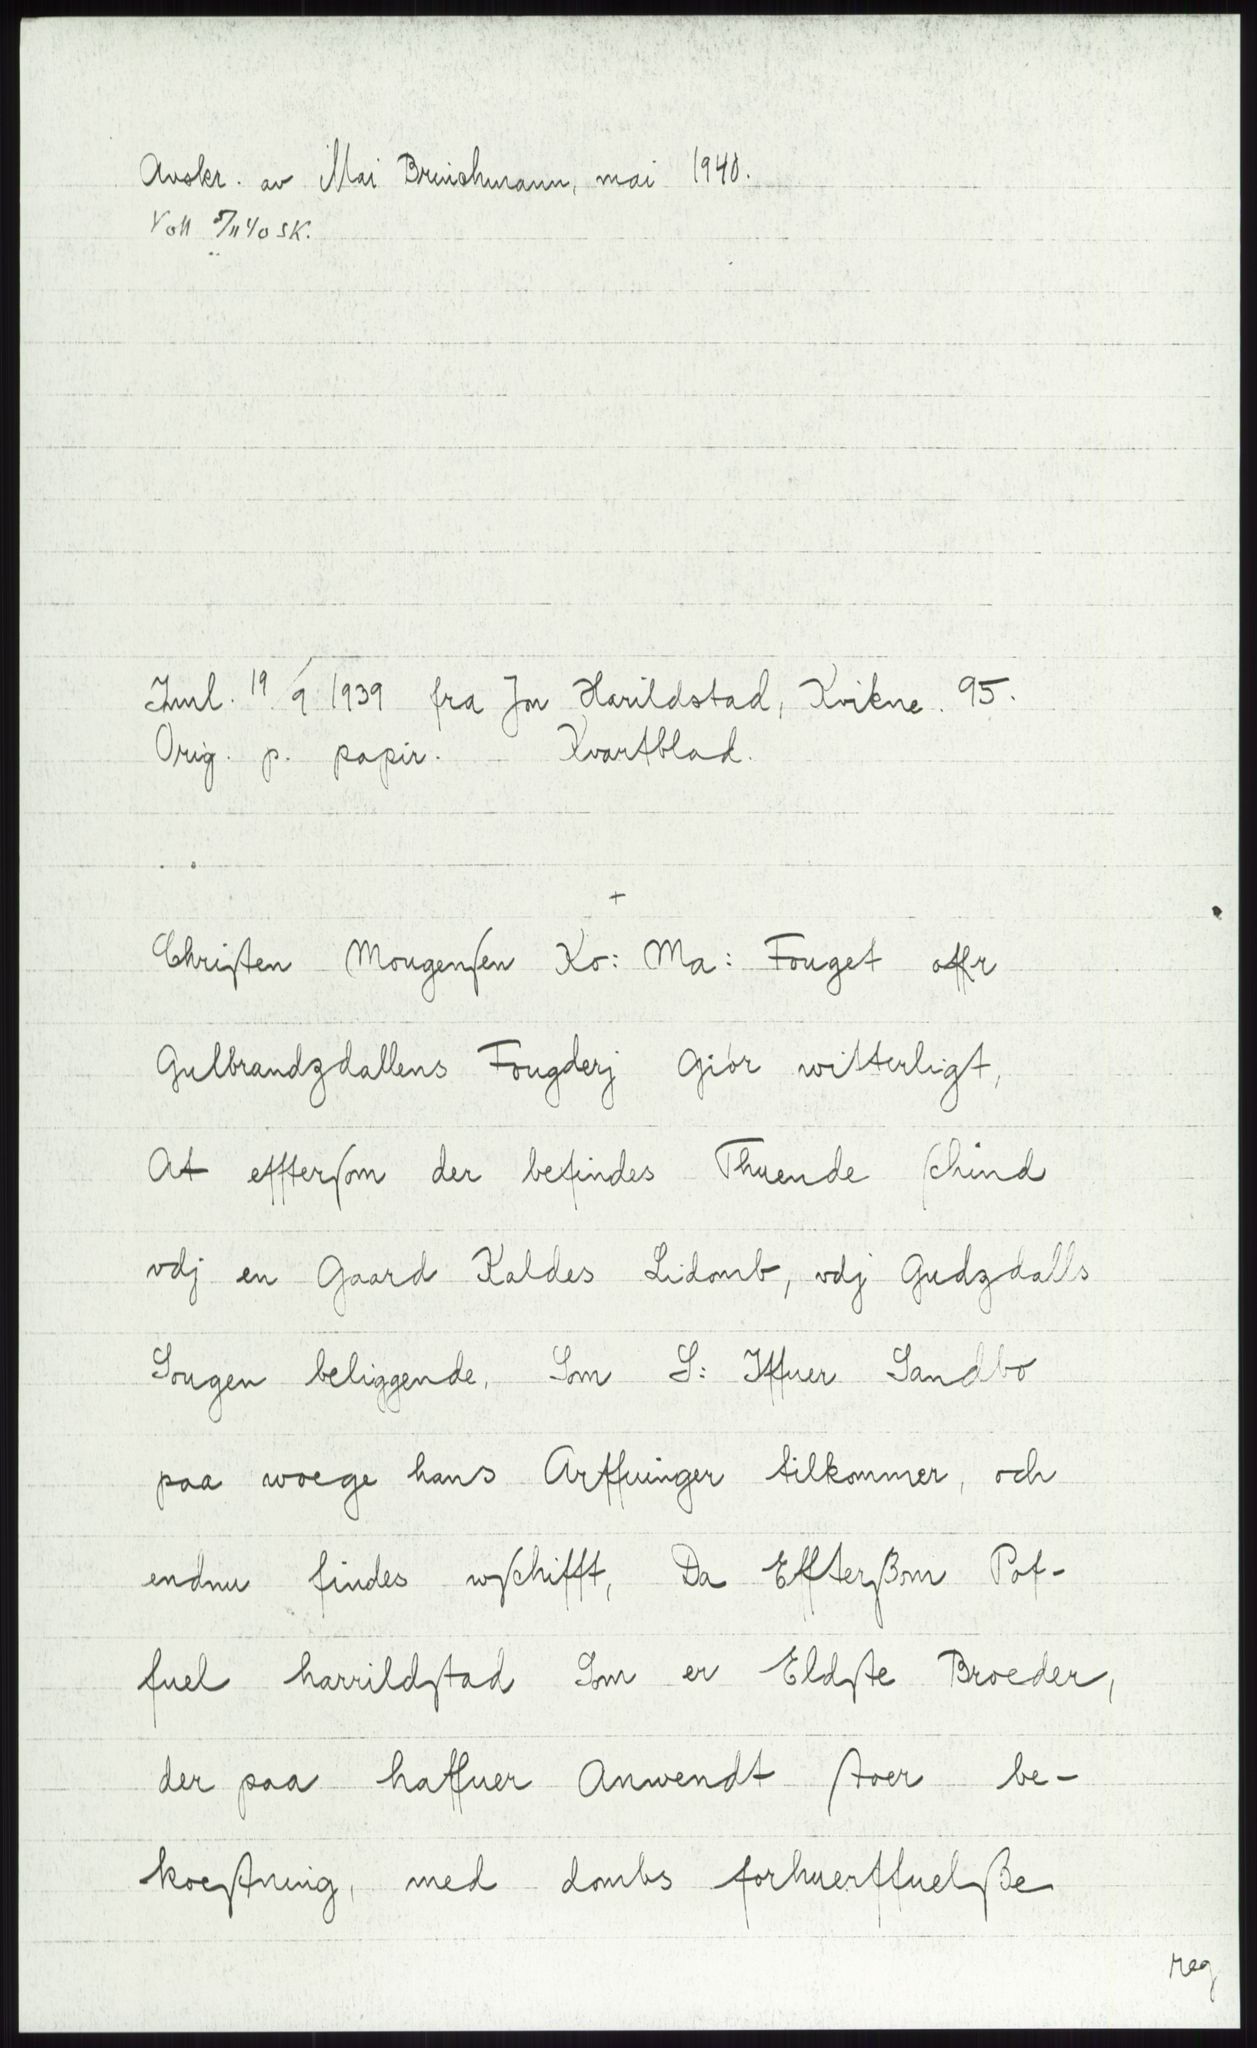 Avskr. av Mai Brinchmann, mai 1940.
Koll 5/11 40 SK.
Innl. 19/9 1939 fra Jon Harildstad, Kvikne. 95.
Orig. p. papir. Kvartblad.
+
Chriſten Mougenſen Ko: Ma: Fouget offr
Gulbrandzdallens Fougderj Giör witterligt,
At effterſom der befindes Thuende ſchind
vdj en Gaard Kaldes Lidomb, vdj Gudzdalls
Sougen beliggende. Som S: Iffuer Sandbo
paa woege hans Arffuinger tilkommer, och
endnu findes wſchifft, Da Effterßom Pof-
fuel harrildſtad Som er Eldſte Broeder,
der paa haffuer Anwendt ſtoer be-
koeſtning, med dombs forhuerffuelße
reg